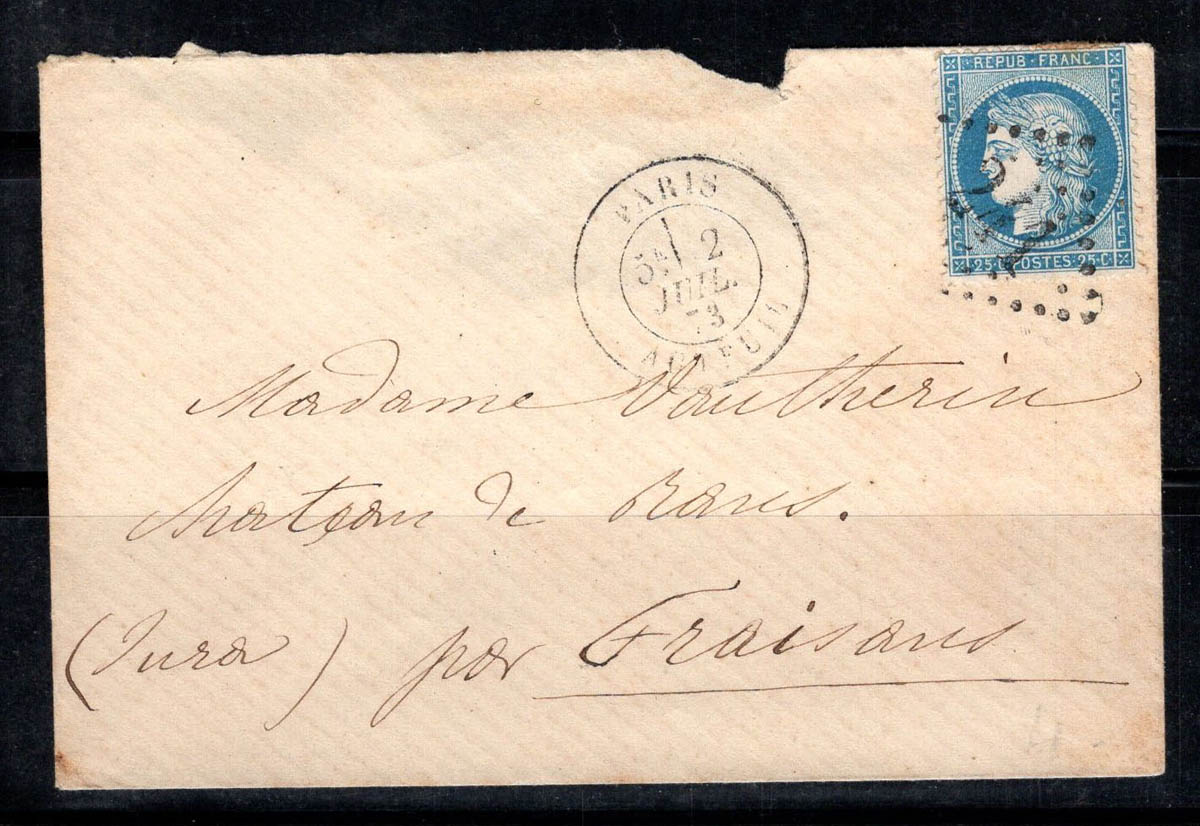 REPUB · FRANC ·
25 · C POSTES · 25 · C
PARIS
5E 2
JUIL.
73
AUTEUIL
Madame Vautherin
chateau de Rans.
(Jura) par Fraisans